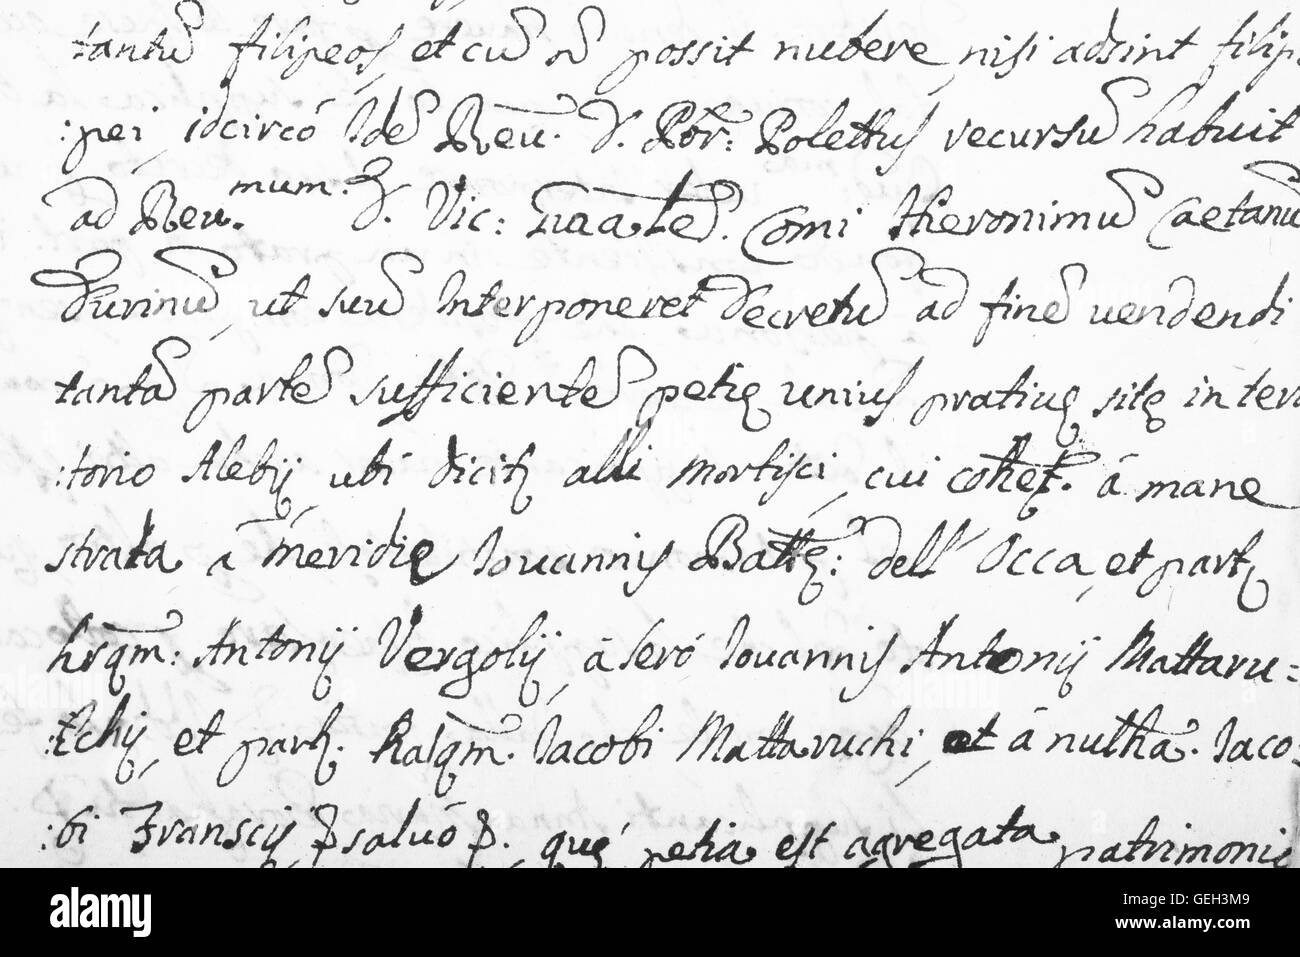 tantũ filipeos, et cũ nõ possit nubere, nisi adsint filip
:pei, idcircó Idẽ Reu. D. Pbr: Polettus recursũ habuit
ad Reu.mum. D. Vic: Comi Hieronimũ Caetanũ
Durinũ, ut suũ Interponeret Decretũ ad finẽ uendendi
tantã partẽ sufficientẽ petię unius pratiuę sitę in teri
:torio Alebij, ubi dicitȝ alli mortisci, cui cohet. á mane
strata, á meridie Iouannis Battȝ: dell' Occa, et partȝ
hręqm: Antonij Vergolij, á seró Iouannis Antonij Mattaru=
:tchij, et partȝ. Iacobi Mattaruchi, et á nulhã. Iaco=
:bi Franscij, salvó. quę petia est agregata patrimonio
alamy
Image ID: GEH3M9
www.alamy.com